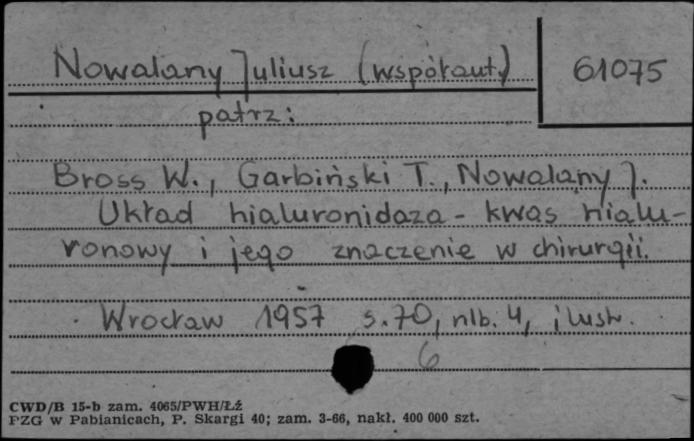 Nowalany Juliusz (współaut.) 61075
patrz:
Bross W., Garbiński T., Nowalany J.
Układ hialuronidaza - kwas hialu-
ronowy i jego znaczenie w chirurgii.
Wrocław 1957 s. 70, nlb. 4, ilustr.
6
CWD/B 15-b zam. 4065/PWH/Łź
PZG w Pabianicach, P. Skargi 40; zam. 3-66, nakł. 400 000 szt.